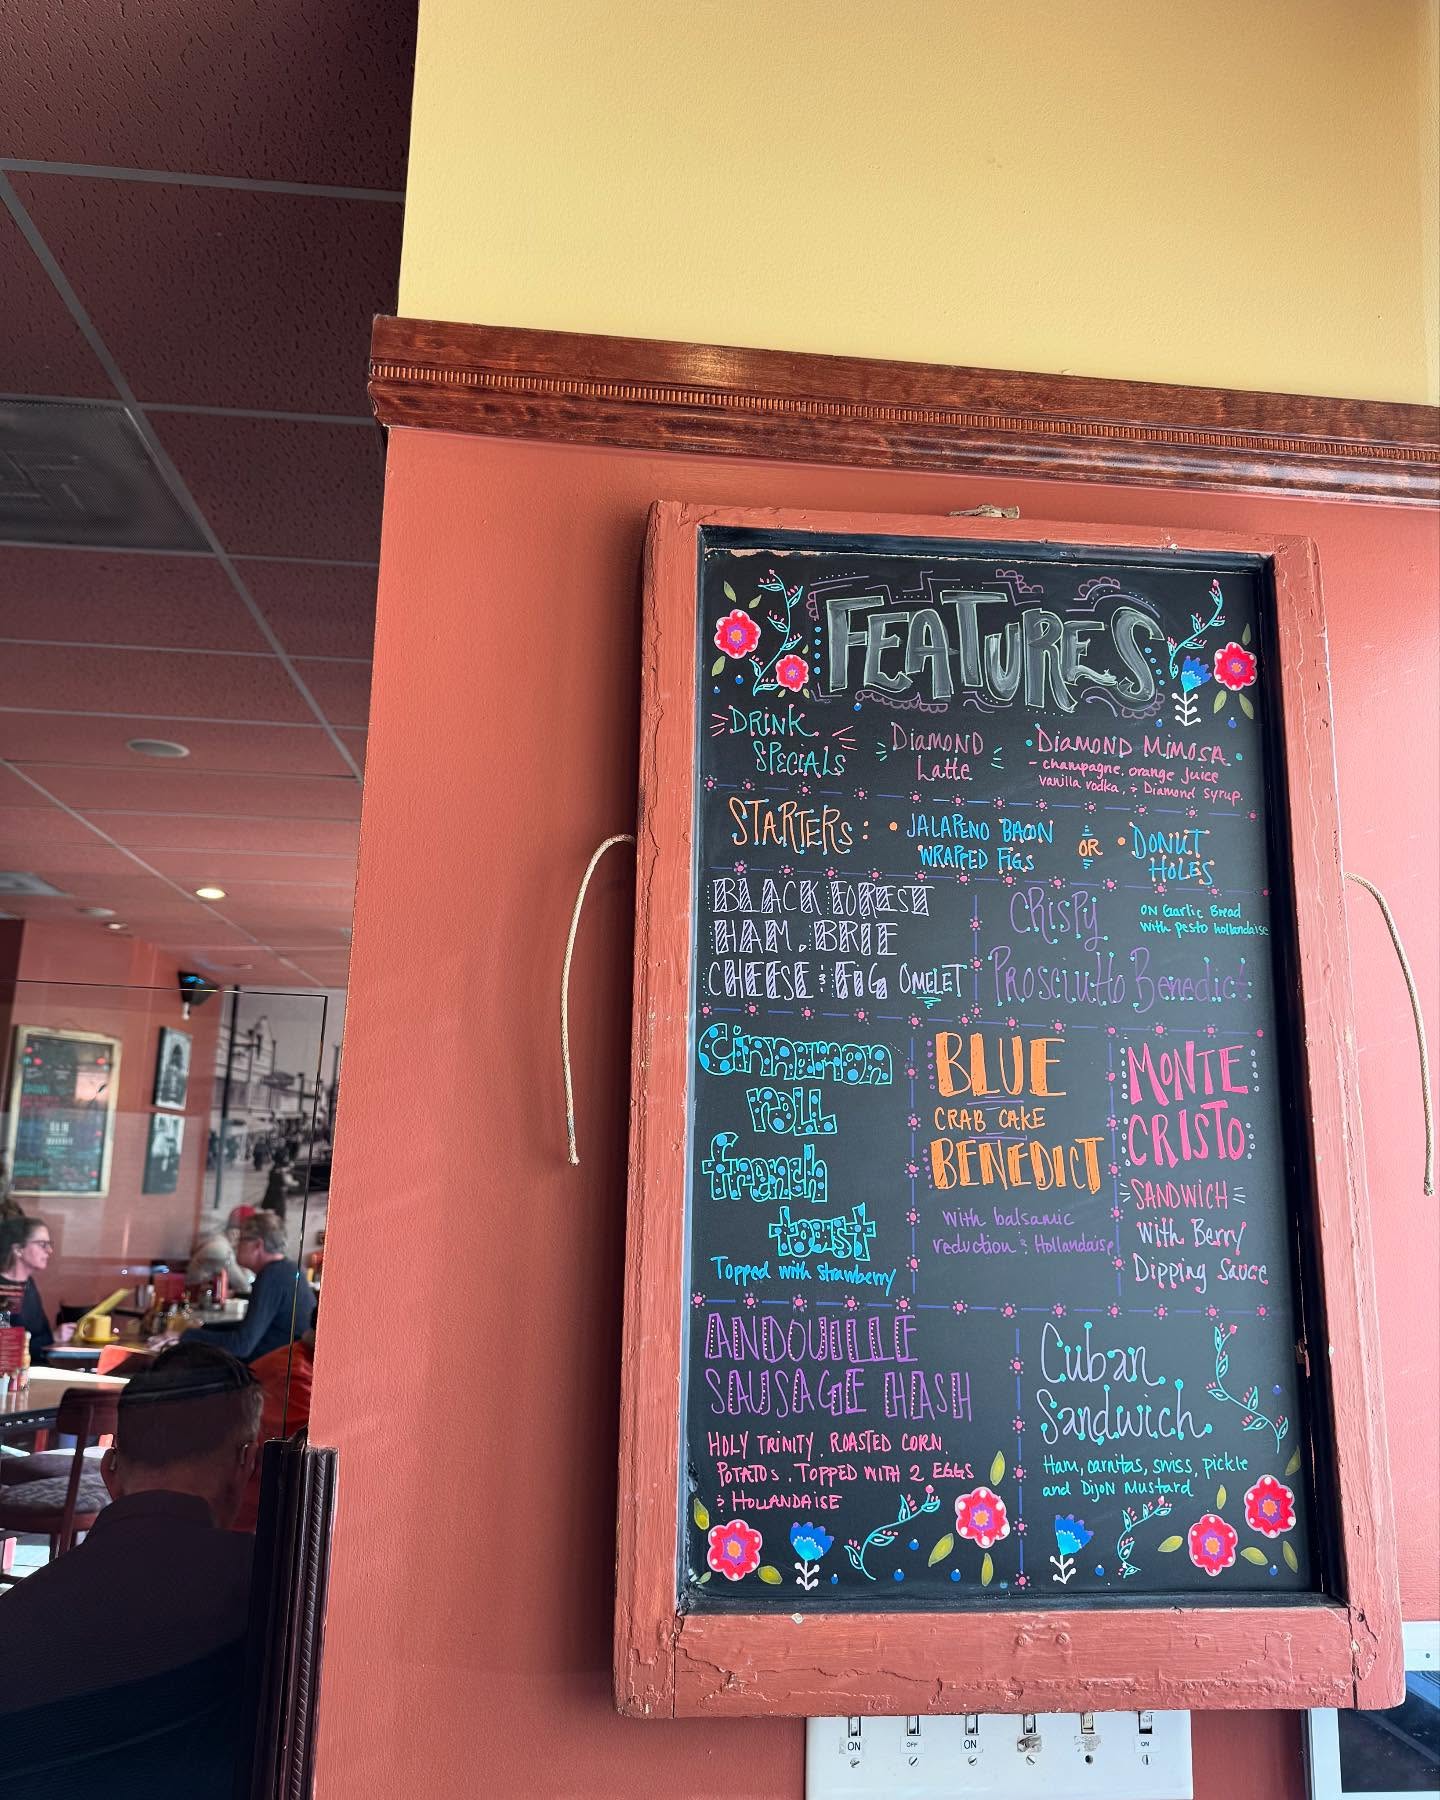 FEATURES
DRINK SPECIALS
DIAMOND Latte
DIAMOND MIMOSA
- champagne, orange juice
vanilla vodka, & Diamond syrup.
STARTERS:
• JALAPENO BACON
WRAPPED FIGS
OR
• DONUT
HOLES
BLACK FOREST
HAM, BRIE
CHEESE & FIG OMELET
CRISPY
PROSCIUTTO Benedict
ON Garlic Bread
with pesto hollandaise
Cinnamon
roll
french
toast
Topped with strawberry
BLUE
CRAB CAKE
BENEDICT
with balsamic
reduction & Hollandaise
MONTE
CRISTO
SANDWICH
With Berry
Dipping Sauce
ANDOUILLE
SAUSAGE HASH
HOLY TRINITY, ROASTED CORN,
POTATOS, TOPPED WITH 2 EGGS
& HOLLANDAISE
Cuban
Sandwich
Ham, carnitas, swiss, pickle
and DIJON MUSTARD
ON
OFF
ON
ON